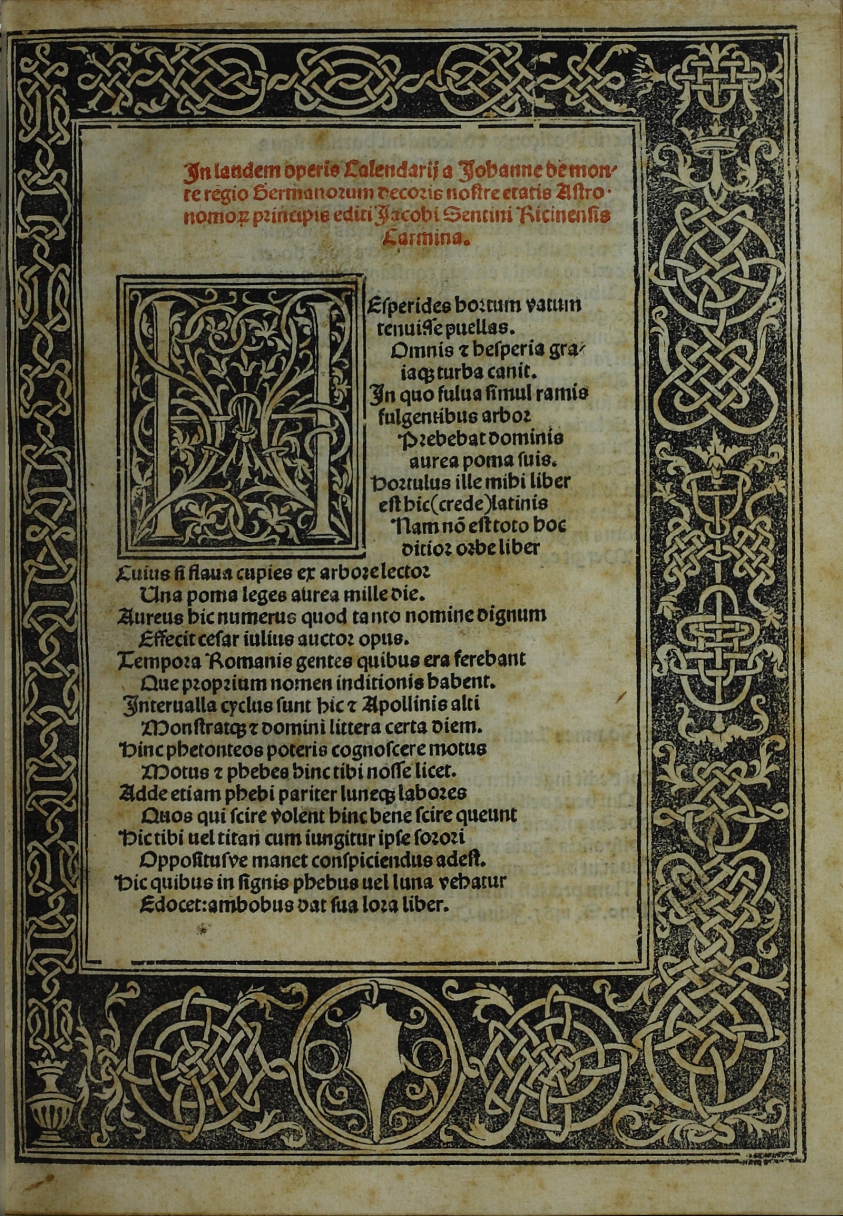 In laudem operis Calendarij a Johanne de mon-
te regio Germanorum decoris nostre etatis Astro-
nomoꝝ principis editi Jacobi Sentini Ricinensis
Carmina.
HEsperides hortum vatum
tenuisse puellas.
Omnis ⁊ hesperia gra-
iaqꝫ turba canit.
In quo fulua simul ramis
fulgentibus arbor
Prebebat dominis
aurea poma suis.
Hortulus ille mihi liber
est hic (crede) latinis
Nam nõ est toto hoc
ditior orbe liber
Cuius si flaua cupies ex arbore lector
Una poma leges aurea mille die.
Aureus hic numerus quod tanto nomine dignum
Effecit cesar iulius auctor opus.
Tempora Romanis gentes quibus era ferebant
Que proprium nomen inditionis habent.
Interualla cyclus sunt hic ⁊ Apollinis alti
Monstratqꝫ ⁊ domini littera certa diem.
Hinc phetonteos poteris cognoscere motus
Motus ⁊ phebes hinc tibi nosse licet.
Adde etiam phebi pariter luneqꝫ labores
Quos qui scire volent hinc bene scire queunt
Hic tibi uel titan cum iungitur ipse sorori
Oppositusve manet conspiciendus adest.
Hic quibus in signis phebus uel luna vehatur
Edocet: ambobus dat sua lora liber.